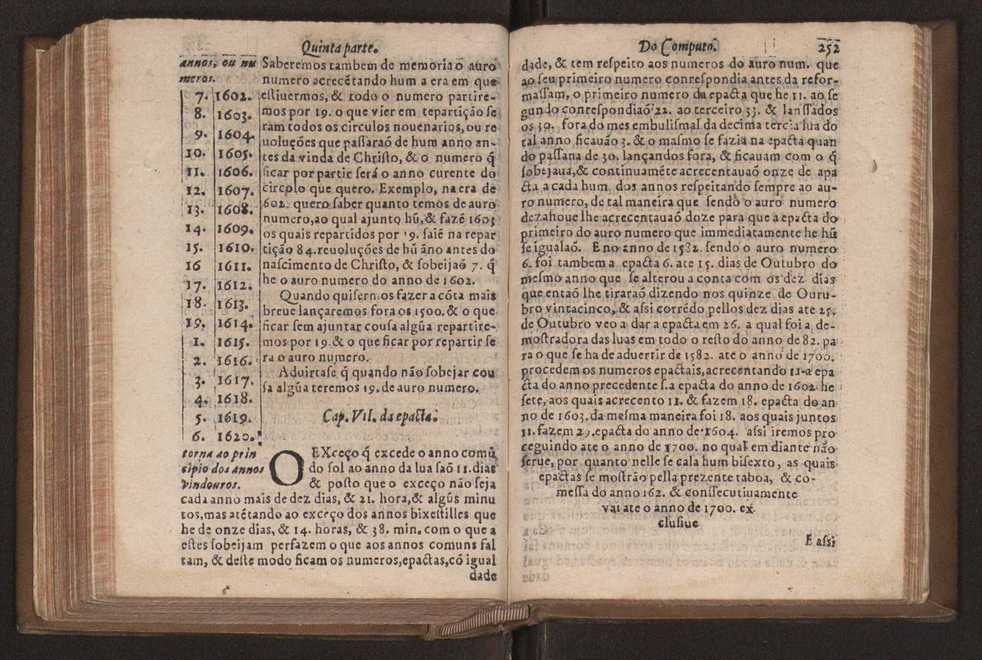 Quinta parte.
annos, ou nu
meros.
7. 1602.
8. 1603.
9. 1604.
10. 1605.
11. 1606.
12. 1607.
13. 1608.
14. 1609.
15. 1610.
16 1611.
17. 1612.
18. 1613.
19. 1614.
1. 1615.
2. 1616.
3. 1617.
4. 1618.
5. 1619.
6. 1620.
torna ao prin
sipio dos annos
vindouros.
Saberemos tambem de memoria õ auro
numero acrecẽtando hum a era em que
estiuermos, & todo o numero partire-
mos por 19. o que vier em tepartição se
ram todos os circulos nouenarios, ou re
uoluções que passaraõ de hum anno an-
tes da vinda de Christo, & o numero q̃
ficar por partir será o anno curente do
circolo que quero. Exemplo, na era de
602. quero saber quanto temos de auro
numero, ao qual ajunto hũ, & fazẽ 1603
os quais repartidos por 19. saiẽ na repar
tição 84. reuoluções de hũ ãno antes do
nascimento de Christo, & sobeijaõ 7. q̃
he o auro numero do anno de 1602.
Quando quisermos fazer a cõta mais
breue lançaremos fora os 1500. & o que
ficar sem ajuntar cousa algũa repartire-
mos por 19. & o que ficar por repartir se
ra o auro numero.
Aduirtase q̃ quando não sobejar cou
sa algũa teremos 19. de auro numero.
Cap. VII. da epacta.
O EXceço q̃ excede o anno comũ
do sol ao anno da lua saõ 11. dias
& posto que o exceço não seja
cada anno mais de dez dias, & 21. hora, & algũs minu
tos, mas atẽtando ao exceço dos annos bixestilles que
he de onze dias, & 14. horas, & 38. min. com o que a
estes sobeijam perfazem o que aos annos comuns fal
tam, & deste modo ficam os numeros, epactas, cõ igual
dade
Do Computo. 252
dade, & tem respeito aos numeros do auro num. que
ao seu primeiro numero conrespondia antes da refor-
massam, o primeiro numero da epacta que he 11. ao se
gundo correspondiaõ 22. ao terceiro 33. & lanssados
os 30. fora do mes embulismal da decima tercia lua do
tal anno ficauão 3. & o masmo se fazia na epacta quan
do passaua de 30. lançandos fora, & ficauam com o q̃
sobejaua, & continuamẽte acrecentauaõ onze de apa
cta a cada hum dos annos respeitando sempre ao au-
ro numero, de tal maneira que sendo o auro numero
dezanoue lhe acrecentauaõ doze para que a epacta do
primeiro do auro numero que immediatamente he hũ
se igualaõ. E no anno de 1582. sendo o auro numero
6. foi tambem a epacta 6. ate 15. dias de Outubro do
mesmo anno que se alterou a conta com os dez dias
que entaõ lhe tiraraõ dizendo nos quinze de Outu-
bro vintacinco, & assi corrẽdo pellos dez dias ate 25.
de Outubro veo a dar a epacta em 26. a qual foi a de-
mostradora das luas em todo o resto do anno de 82. pa
ra o que se ha de aduertir de 1582. ate o anno de 1700.
procedem os numeros epactais, acrecentando 11. a epa
cta do anno precedente s.a epacta do anno de 1602 he
sete, aos quais acrecento 11. & fazem 18. epacta do an
no de 1603. da mesma maneira foi 18. aos quais juntos
11. fazem 29. epacta do anno de 1604. assi iremos pro
ceguindo ate o anno de 1700. no qual em diante não
serue, por quanto nelle se cala hum bisexto, as quais
epactas se mostrão pella prezente taboa, & co-
messa do anno 162. & conssecutiuamente
vai ate o anno de 1700. ex
clusiue
E assi